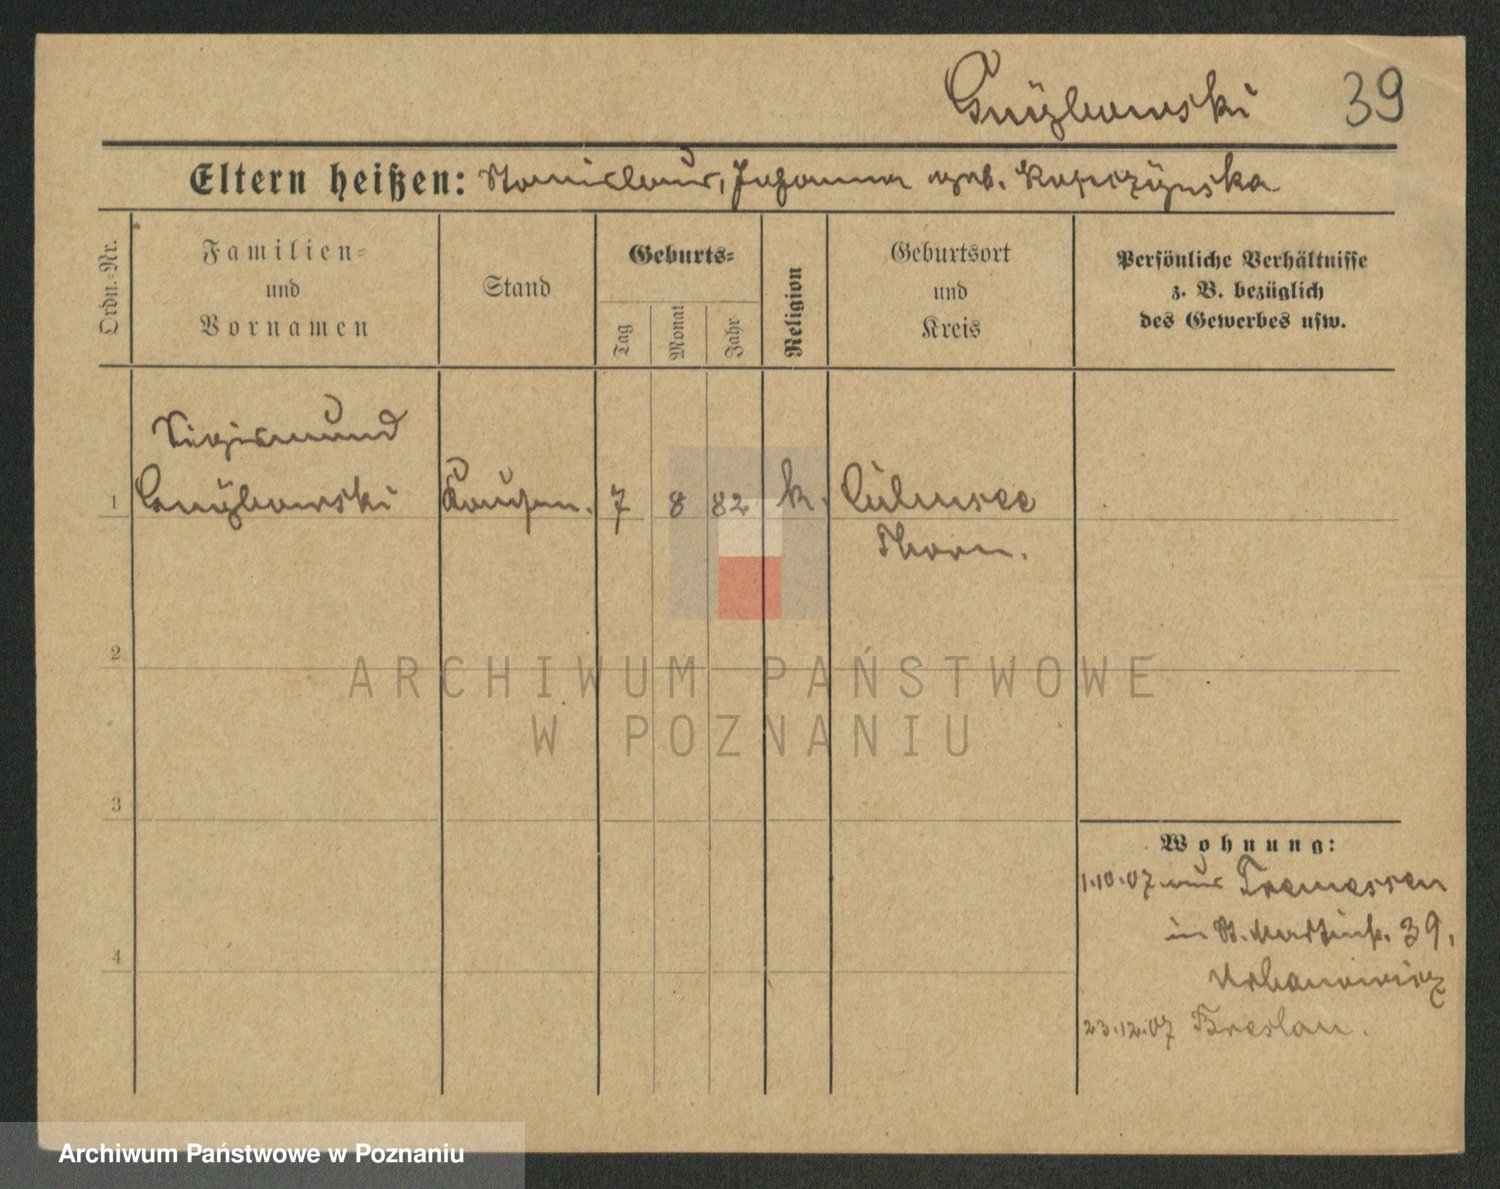 39
Eltern heißen: Stanislaus, Johanna geb. Kopczynska
Ordn.-Nr.
Familien-
und
Vornamen
Stand
Geburts-
Tag
Monat
Jahr
Religion
Geburtsort
und
Kreis
Persönliche Verhältnisse
z. B. bezüglich
des Gewerbes usw.
Sigismund
1
Kaufm. 7 8 82 k. Culmsee
Thorn.
2
ARCHIWUM PAŃSTWOWE
W POZNANIU
3
Wohnung:
1.10.07 aus Tremessen
in St. Martinstr. 39,
4
Urbanowicz
23.12.07 Breslau.
Archiwum Państwowe w Poznaniu